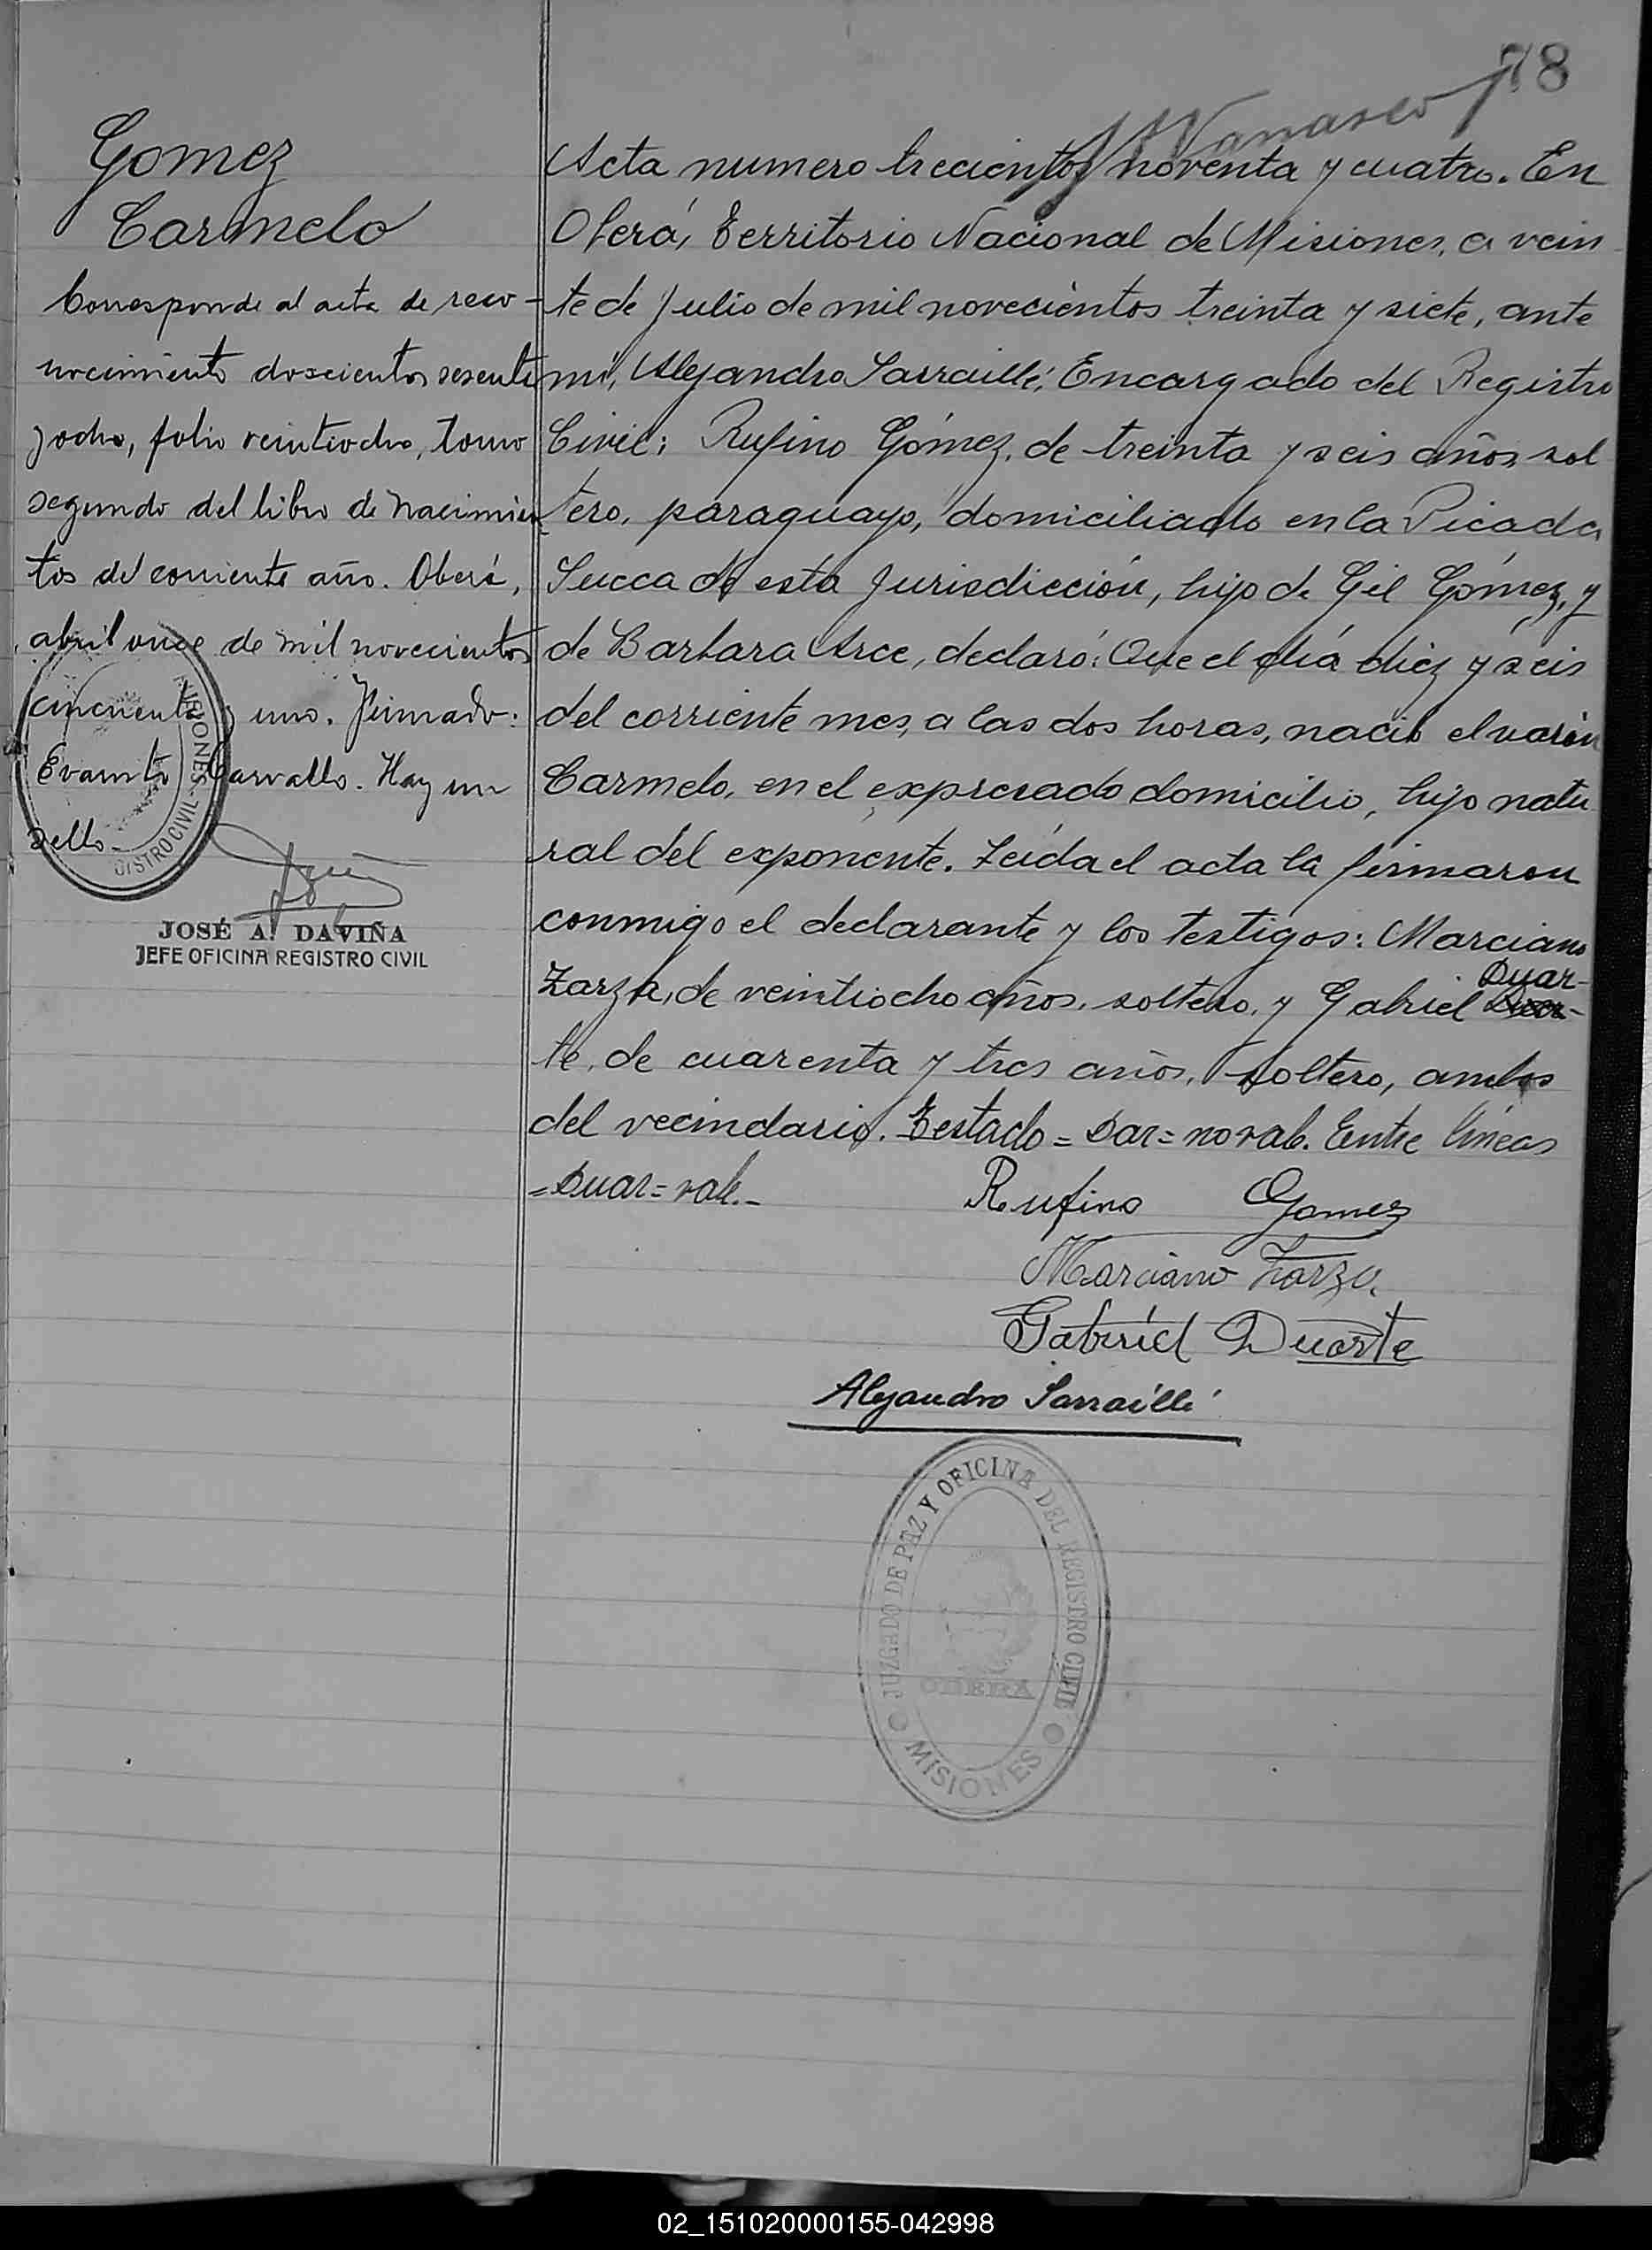 78
Gomez
Carmelo
Corresponde al acta de reco-
nocimiento doscientos sesenta
y ocho, folio veintiocho, tomo
segundo del libro de nacimien
tos del corriente año. Oberá,
abril once de mil novecientos
cincuenta y uno. Firmado:
Evaristo Carvallo. Hay un
sello.-
MISIONES
JOSÉ A. DAVIÑA
JEFE OFICINA REGISTRO CIVIL
Acta numero trecientos noventa y cuatro. En
Oberá, Territorio Nacional de Misiones, a vein
te de Julio de mil novecientos treinta y siete, ante
mí, Alejandro Sarraillé, Encargado del Registro
Civil; Rufino Gómez, de treinta y seis años, sol
tero, paraguayo, domiciliado en la Picada
Succa de esta Jurisdicción, hijo de Gil Gómez, y
de Barbara Arce, declaró: Que el día diez y seis
del corriente mes, a las dos horas, nació el varón
Carmelo, en el expresado domicilio, hijo natu
ral del exponente. Leída el acta la firmaron
conmigo el declarante y los testigos: Marciano
Zarza, de veintiocho años, soltero, y Gabriel Duar-
te, de cuarenta y tres años, soltero, ambos
del vecindario. Testado = Dar = no vale. Entre líneas
= Duar = vale.-
Rufino Gomez
Marciano Zarza.
Gabriel Duarte
Alejandro Sarraillé
JUZGADO DE PAZ Y OFICINA DEL REGISTRO CIVIL
OBERA
MISIONES
02_151020000155-042998